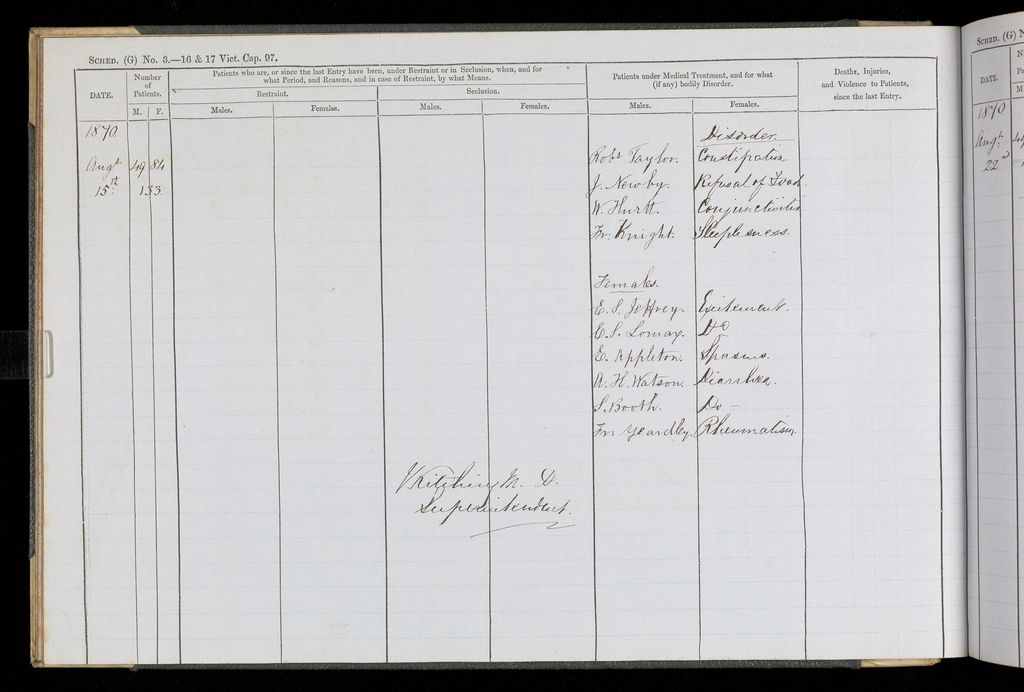 SCHED. (G) No. 3.—16 & 17 Vict. Cap. 97.
DATE.
Number of Patients.
M. F.
Patients who are, or since the last Entry have been, under Restraint or in Seclusion, when, and for
what Period, and Reasons, and in case of Restraint, by what Means.
Restraint.
Seclusion.
Males. Females. Males. Females.
Patients under Medical Treatment, and for what
(if any) bodily Disorder.
Males. Females.
Deaths, Injuries,
and Violence to Patients,
since the last Entry.
1870.
Disorder
Augt 49 84 Robt Taylor. Constipation
15th 133 J. Newby. Refusal of Food
W. Hurtt. Conjunctivitis
Fr: Knight. Sleeplesness.
Females.
E. S. Jeffrey. Excitement.
C. S. Lomax. Do
E. Appleton. Spasms.
A. H. Watson. Diarrhea.
S. Booth. Do –
Fr: Yeardley. Rheumatism.
J. Kitching M. D.
Superintendent.
SCHED. (G) N
DATE.
1870
Augt
22nd